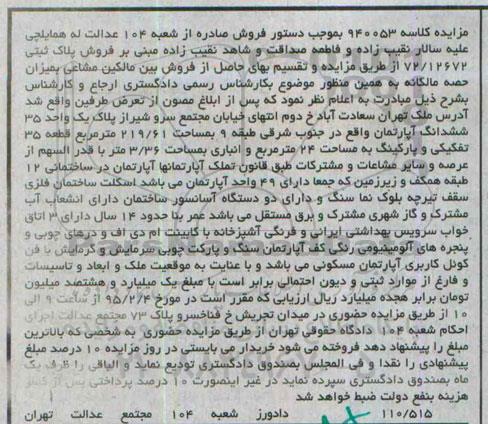 مزایده کلاسه 940053 بموجب دستور فروش صادره از شعبه 104 عدالت له همایلچی
علیه سالار نقیب زاده و فاطمه صداقت و شاهد نقیب زاده مبنی بر فروش پلاک ثبتی
72/12672 از طریق مزایده و تقسیم بهای حاصل از فروش بین مالکین مشاعی بمیزان
حصه مالکانه به همین منظور موضوع بکارشناس رسمی دادگستری ارجاع و کارشناس
بشرح ذیل مبادرت به اعلام نظر نمود که پس از ابلاغ مصون از تعرض طرفین واقع شد
آدرس ملک تهران سعادت آباد خ دوم انتهای خیابان مجتمع سرو شیراز پلاک یک واحد 35
ششدانگ آپارتمان واقع در جنوب شرقی طبقه 9 بمساحت 219/61 مترمربع قطعه 35
تفکیکی و پارکینگ به مساحت 24 مترمربع و انباری بمساحت 3/36 متر با قدر السهم از
عرصه و سایر مشاعات و مشترکات طبق قانون تملک آپارتمانها آپارتمان در ساختمانی 12
طبقه همکف و زیرزمین که جمعا دارای 49 واحد آپارتمان می باشد اسکلت ساختمان فلزی
سقف تیرچه بلوک نما سنگ و دارای دو دستگاه آسانسور ساختمان دارای انشعاب آب
مشترک و گاز شهری مشترک و برق مستقل می باشد عمر بنا حدود 14 سال دارای 3 اتاق
خواب سرویس بهداشتی ایرانی و فرنگی آشپزخانه با کابینت ام دی اف و درهای چوبی و
پنجره های آلومینیومی رنگی کف آپارتمان سنگ و پارکت چوبی سرمایش و گرمایش با فن
کوئل کاربری آپارتمان مسکونی می باشد و با عنایت به موقعیت ملک و ابعاد و تاسیسات
و فارغ از موارد ثبتی و دیون احتمالی برابر است با مبلغ یک میلیارد و هشتصد میلیون
تومان برابر هجده میلیارد ریال ارزیابی که مقرر است در مورخ 95/2/4 از ساعت 9 الی
10 از طریق مزایده حضوری در میدان تجریش خ فناخسرو پلاک 73 مجتمع عدالت اجرای
احکام شعبه 104 دادگاه حقوقی تهران از طریق مزایده حضوری به شخصی که بالاترین
مبلغ را پیشنهاد دهد فروخته می شود خریدار می بایستی در روز مزایده 10 درصد مبلغ
پیشنهادی را نقدا و فی المجلس بصندوق دادگستری تودیع نماید و الباقی را ظرف یک
ماه بصندوق دادگستری سپرده نماید در غیر اینصورت 10 درصد پرداختی پس از کسر
هزینه بنفع دولت ضبط خواهد شد
110/515 دادورز شعبه 104 مجتمع عدالت تهران